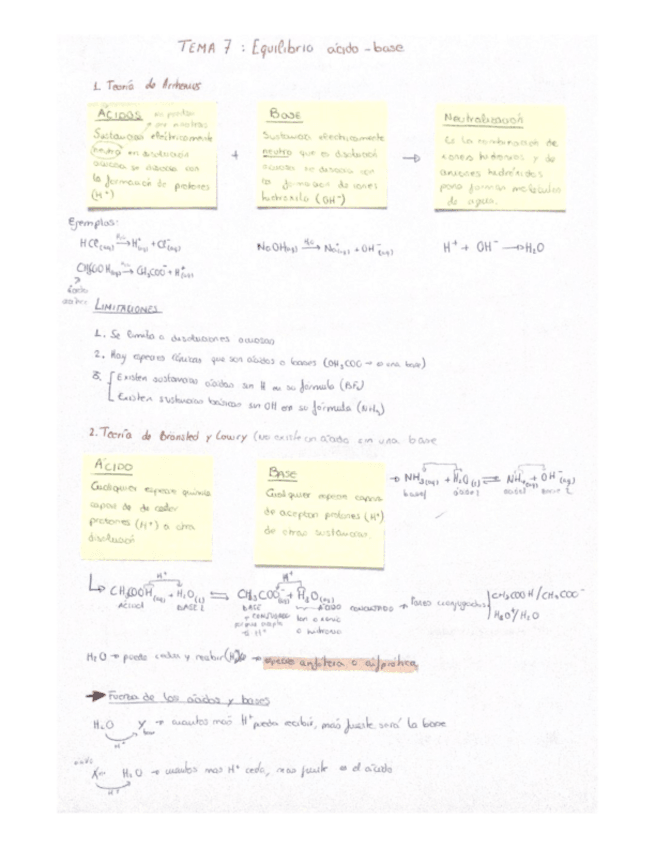 TEMA 7 : Equilibrio ácido-base
1. Teoría de Arrhenius
ÁCIDOS
Sustancias eléctricamente
neutra en disolución
acuosa se disocia con
la formación de protones
(H⁺)
+
BASE
Sustancia eléctricamente
neutra que en disolución
acuosa se disocia con
la formación de iones
hidroxilo (OH⁻)
→
Neutralización
Es la combinación de
iones hidronios y de
aniones hidróxidos
para formar moléculas
de agua.
Ejemplos:
HCl(aq) →H₂O H⁺(aq) + Cl⁻(aq)
NaOH(aq) →H₂O Na⁺(aq) + OH⁻(aq)
H⁺ + OH⁻ → H₂O
CH₃COOH(aq) →H₂O CH₃COO⁻ + H⁺(aq)
LIMITACIONES
1. Se limita a disoluciones acuosas
2. Hay especies iónicas que son ácidos o bases (CH₃COO⁻ → una base)
3. Existen sustancias ácidas sin H en su fórmula
Existen sustancias básicas sin OH en su fórmula (NH₃)
2. Teoría de Bronsted y Lowry (no existe un ácido sin una base
ÁCIDO
Cualquier especie química
capaz de de ceder
protones (H⁺) a otra
disolución
BASE
Cualquier especie capaz
de aceptar protones (H⁺)
de otras sustancias.
→ NH₃(aq) + H₂O(l) ⇌ NH₄⁺(aq) + OH⁻(aq)
base1 ácido2 ácido1 base 2
H⁺ H⁺
CH₃COOH(aq) + H₂O(l) ⇌ CH₃COO⁻(aq) + H₃O⁺(aq) → Pares conjugados CH₃COOH / CH₃COO⁻
H₃O⁺/H₂O
ácido1 BASE 2 BASE ÁCIDO CONJUGADO
CONJUGADA
H₂O → puede ceder y recibir (H⁺) → especie anfótera o anfiprótica
→ Fuerza de los ácidos y bases
H₂O X → cuantos más H⁺ pueda recibir, más fuerte será la base
base
H⁺
ácido
X H₂O → cuantos más H⁺ ceda, más fuerte es el ácido
H⁺